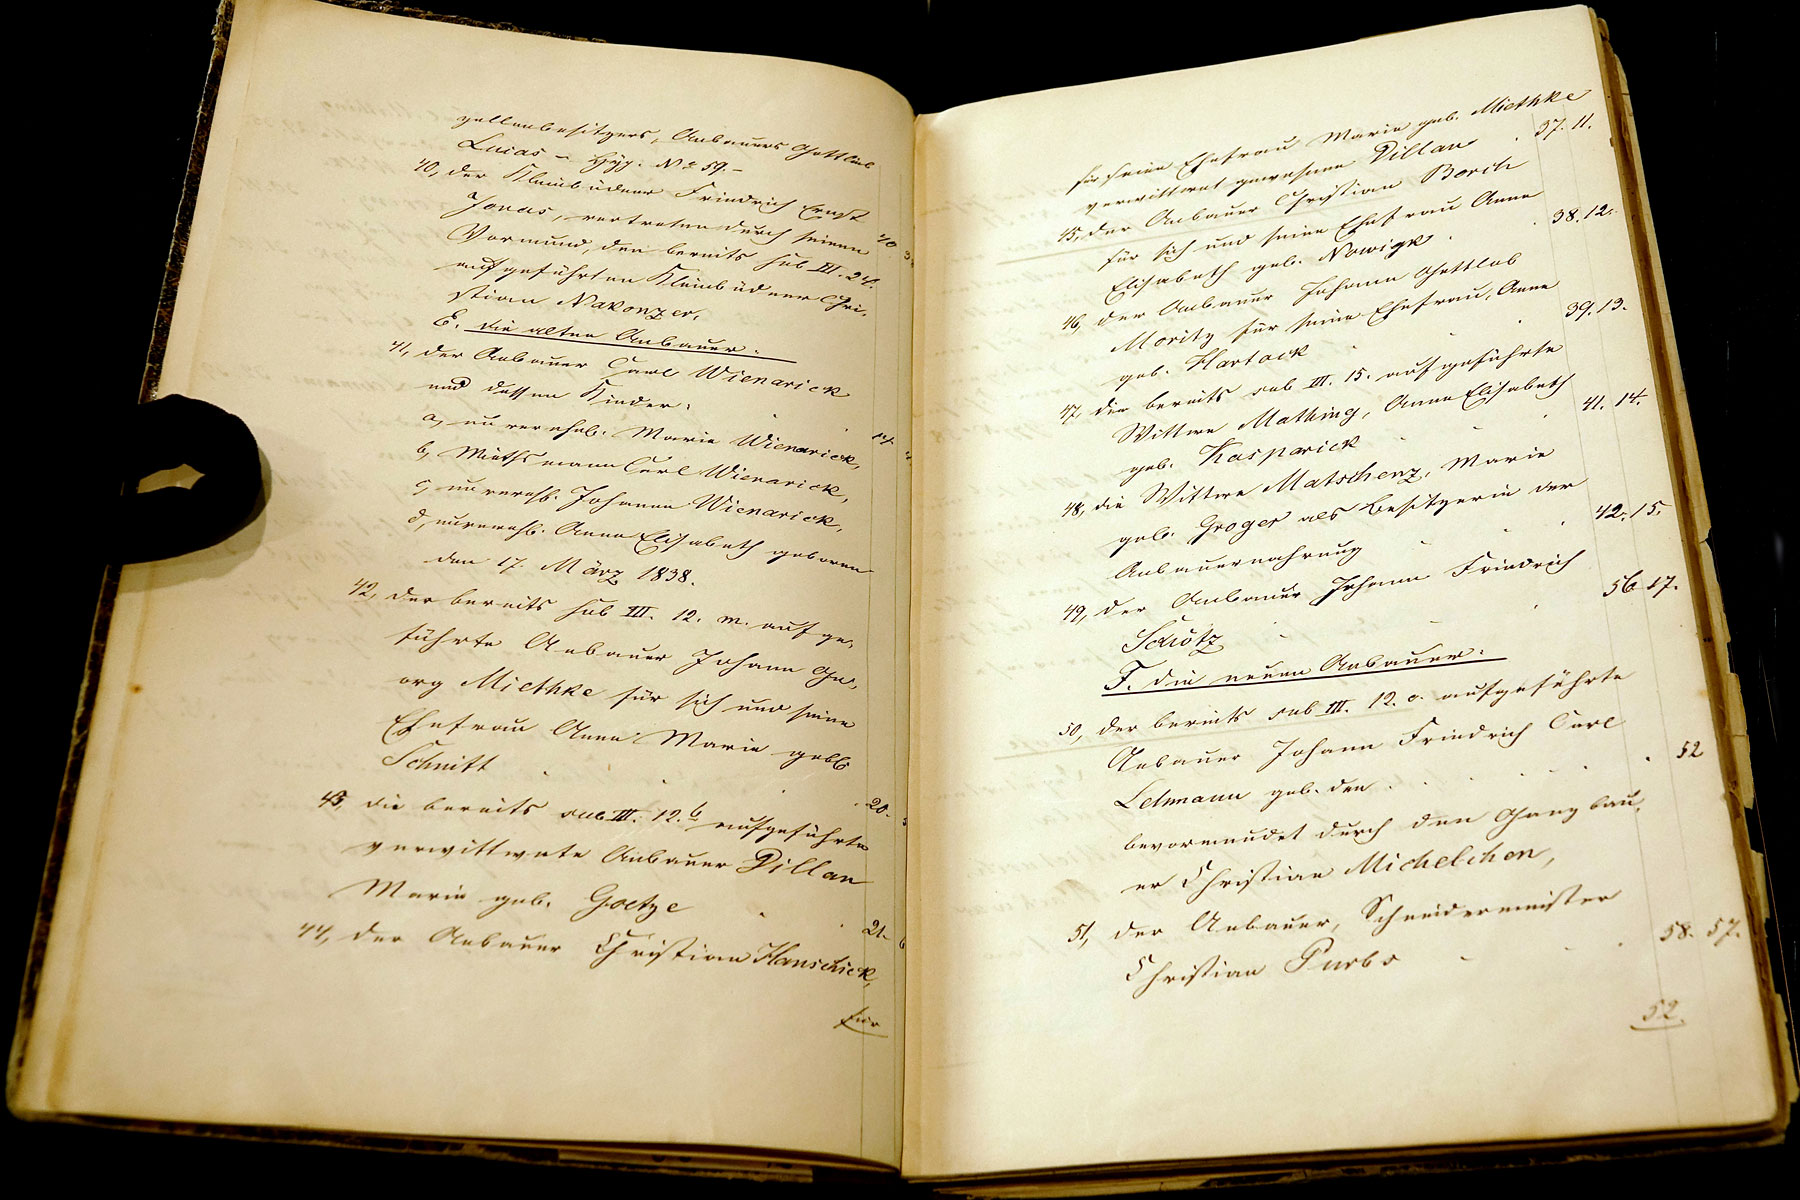 gellenbesitzers, Anbauers Gottlieb
Lucas - Hyp. No 59. -
40, der Kleinbüdner Friedrich Ernst
Jonas, vertreten durch seinen 40
Vormund, den bereits sub III. 24.
aufgeführten Kleinbüdner Chri,
stian Nakonzer.
E. die alten Anbauer.
41, der Anbauer Carl Wienarick
und dessen Kinder:
a, unverehl. Marie Wienarick, 14
b, Miethsmann Carl Wienarick,
c, unverehl. Johanne Wienarick,
d, unverehl. Anna Elisabeth geboren
den 17. März 1838.
42, der bereits sub III. 12. m. aufge,
führte Anbauer Johann Ge,
org Miethke für sich und seine
Ehefrau Anna Marie geb.
Schnitt 20.
43, die bereits sub III. 12. b aufgeführte
verwittwete Anbauer Dillan
Marie geb. Goetze 21. 6
44, der Anbauer Christian Hanschick,
für
für seine Ehefrau Marie geb. Miethke
verwittwet gewesene Dillan 37. 11.
45, der Anbauer Christian Borch
für sich und seine Ehefrau Anne
Elisabeth geb. Nowigk 38. 12.
46, der Anbauer Johann Gottlob
Moritz für seine Ehefrau, Anne
geb. Hartack 39. 13.
47, die bereits sub III. 15. aufgeführte
Wittwe Mathing, Anna Elisabeth
geb. Kasparick 41. 14.
48, die Wittwe Matschenz, Marie
geb. Groger als Besitzerin der
Anbauernahrung 42. 15.
49, der Anbauer Johann Friedrich
Schötz 56. 17.
F. die neuen Anbauer:
50, der bereits sub III. 12. c. aufgeführte
Anbauer Johann Friedrich Carl
Lehmann geb. den 52
bevormundet durch den Ganzbau,
er Christian Michelchen,
51, der Anbauer, Schneidermeister
Christian Purbs 58. 57.
52.